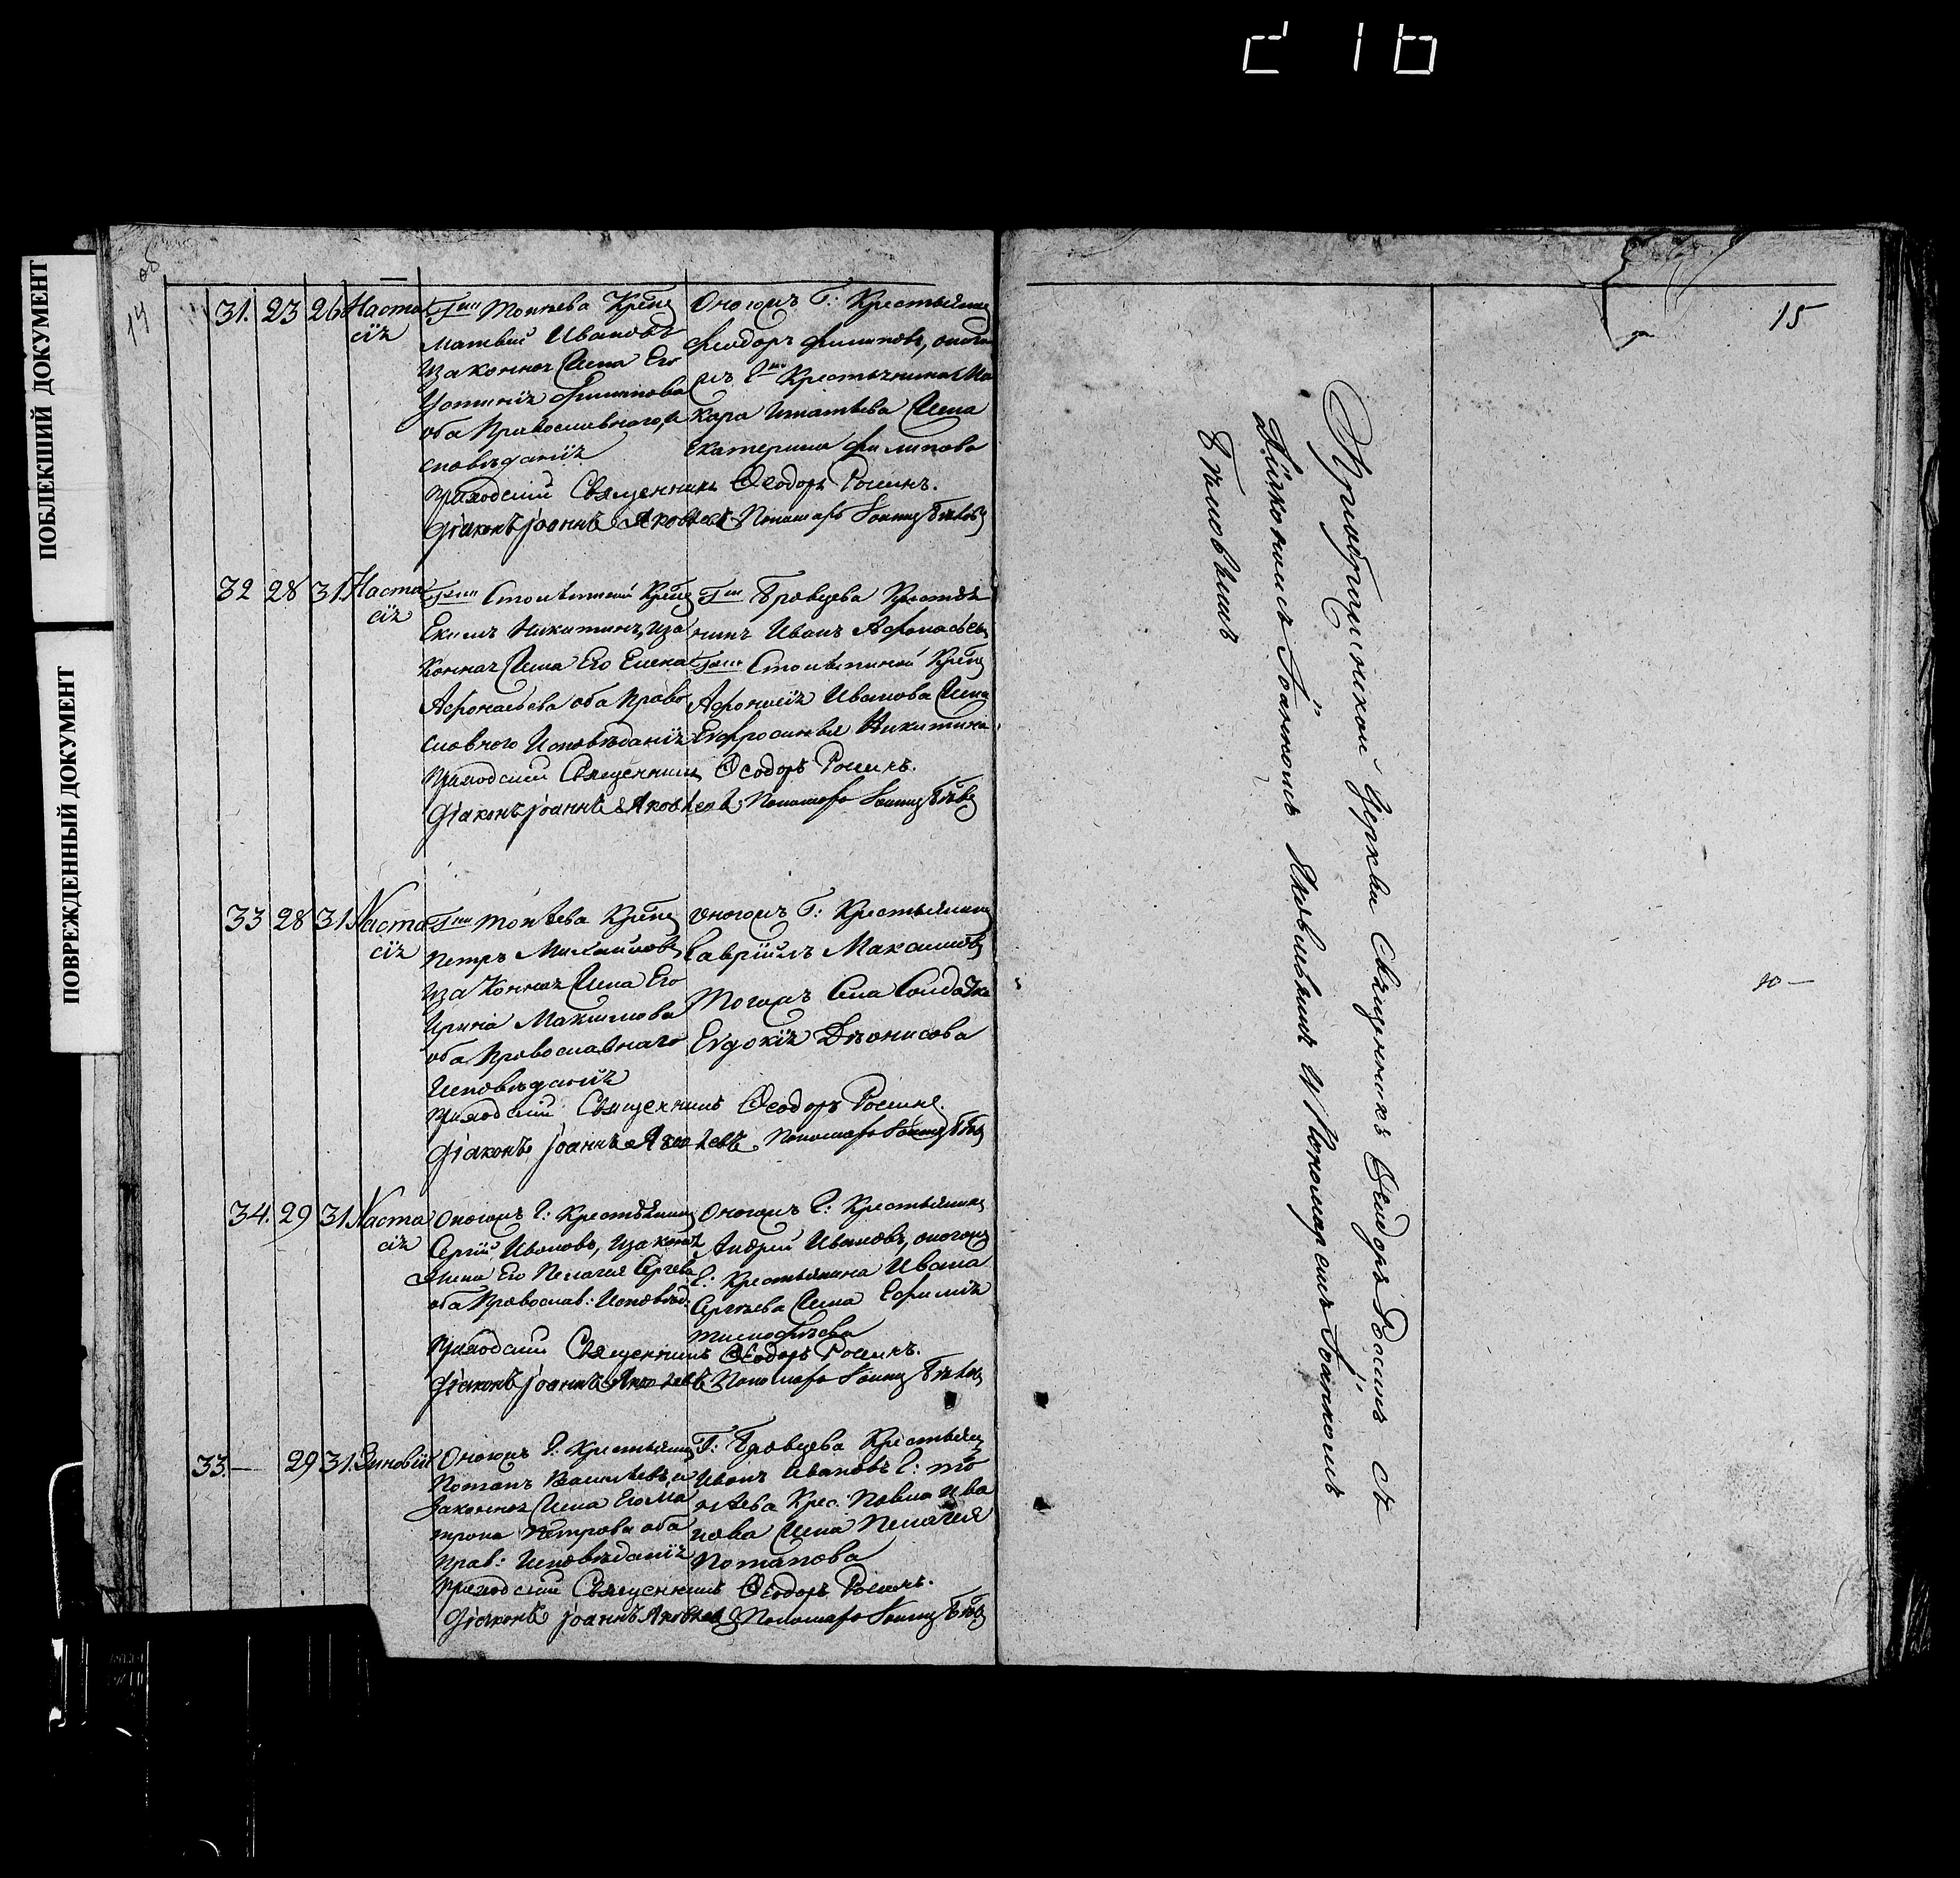 ПОБЛЕКШИЙ ДОКУМЕНТ
ПОВРЕЖДЕННЫЙ ДОКУМЕНТ
14
об
31. 23 26 Наста
сіѧ
Матвей Ивановъ
изаконная Жена Его
Филиппова
оба Православного и
споведанія
Оногожъ Г: Крестьянинъ
Феодоръ Филиповъ,
Крестьянина Ма
кара Игнатьева Жена
Екатерина Филипова
Приходский Священникъ Ѳеодоръ Росинъ.
Діаконъ Іоаннъ Яковлевъ Пономарь Іоаннъ Бѣловъ
32 28 31. Наста
сіѧ
Екимъ Никитинъ, иза
конная Жена Его Елена
Афонасьева оба Право
славного Исповѣданія
Бровцева Крестья
нинъ Иванъ Афонасьевъ
Афонасія Иванова Жена
Евфросинья Никитина
Приходский Священникъ Ѳеодоръ Росинъ.
Діаконъ Іоаннъ Яковлевъ Пономарь Іоаннъ Бѣловъ
33 28 31. Наста
сіѧ
Петръ Михайловъ
иза Конная Жена Его
Ирина Максимова
оба Православнаго
Исповѣданія
Оногожъ Г: Крестьянинъ
Гаврійлъ Максимовъ
Тогожъ Села Солдатка
Евдокія Діонисова
Приходский Священникъ Ѳеодоръ Росинъ.
Діаконъ Іоаннъ Яковлевъ Пономарь Іоаннъ Бѣловъ
34. 29 31. Наста
сіѧ
Оногожъ Г: Крестьянинъ
Сергій Ивановъ, изаконная
Жена Его Пелагея Сергева
оба Православ: Исповѣд:
Оногожъ Г: Крестьянинъ
Андрей Ивановъ, оногожъ
Г: Крестьянина Ивана
Сергѣева Жена Ефимія
Тимофѣева
Приходский Священникъ Ѳеодоръ Росинъ.
Діаконъ Іоаннъ Яковлевъ Пономарь Іоаннъ Бѣловъ
33. — 29 31. Зиновій
Оногожъ Г: Крестьянинъ
Потапъ Васильевъ, и
Законная Жена Его Ма
трона Петрова оба
Прав: Исповѣданія
Г: Бровцева Крестьянинъ
Иванъ Ивановъ Г: То
Крес: Павла Ива
нова Жена Пелагея
Потапова
Приходский Священникъ Ѳеодоръ Росинъ.
Діаконъ Іоаннъ Яковлевъ Пономарь Іоаннъ Бѣловъ
15
Церкви Священникъ Ѳеодоръ Росинъ съ
Діакономъ Іоанномъ Яковлевымъ И Пономаремъ Іоанномъ
Бѣловымъ